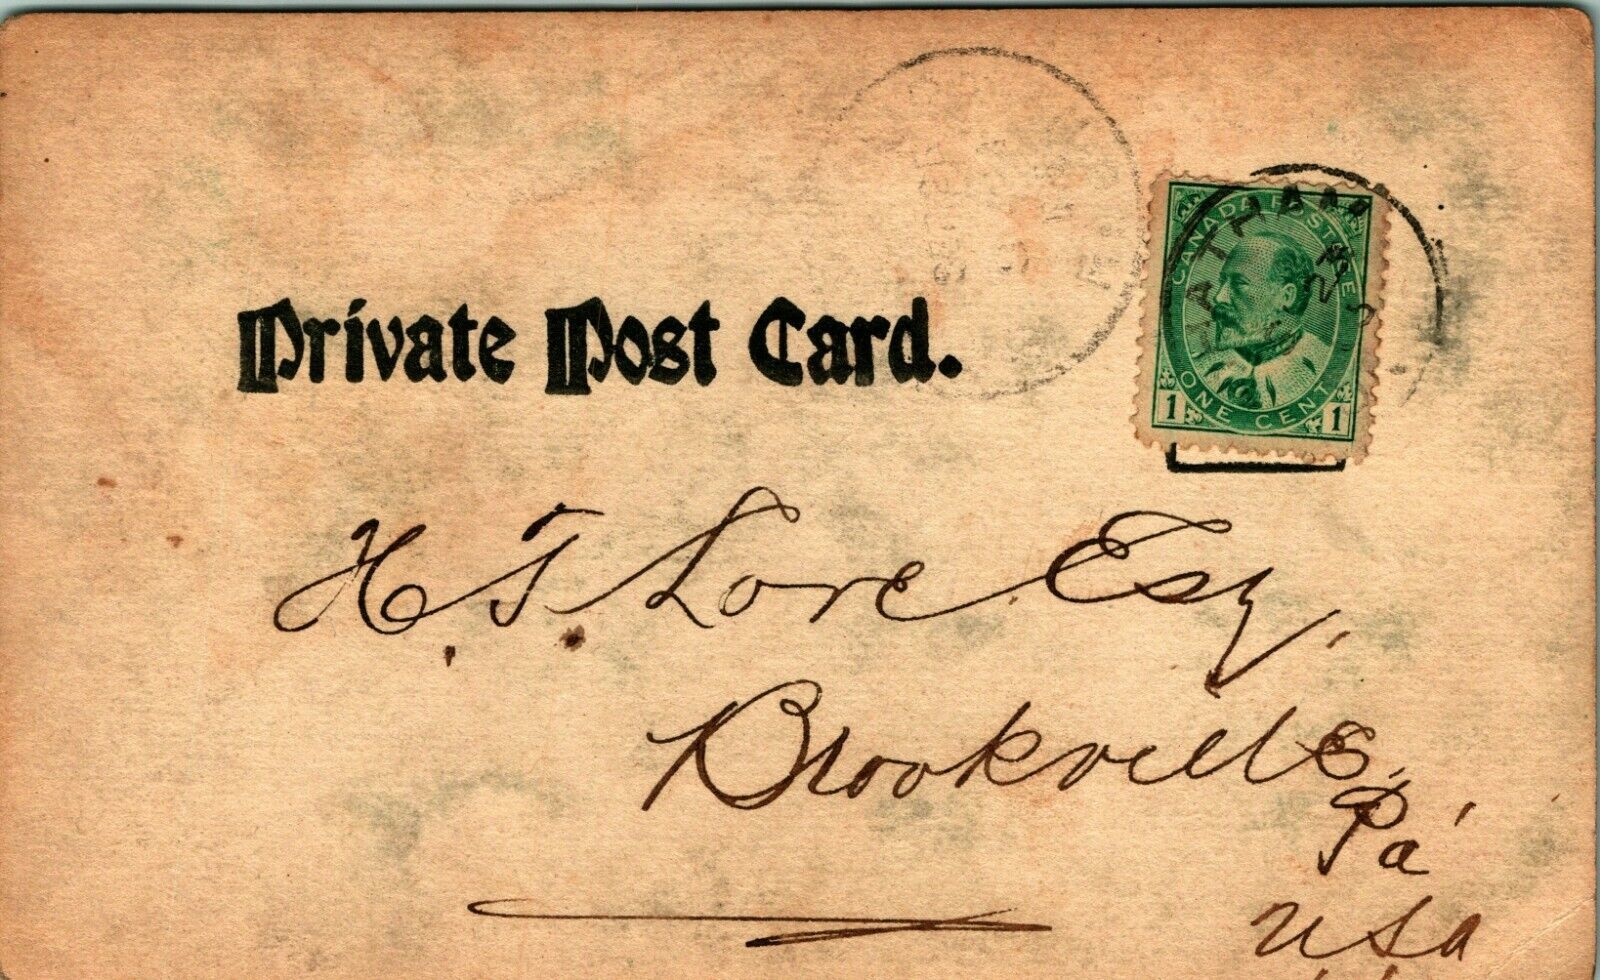 CANADA POSTAGE
1 ONE CENT 1
Private Post Card.
H. T. Love Esq.
Brookville,
Pa
USA